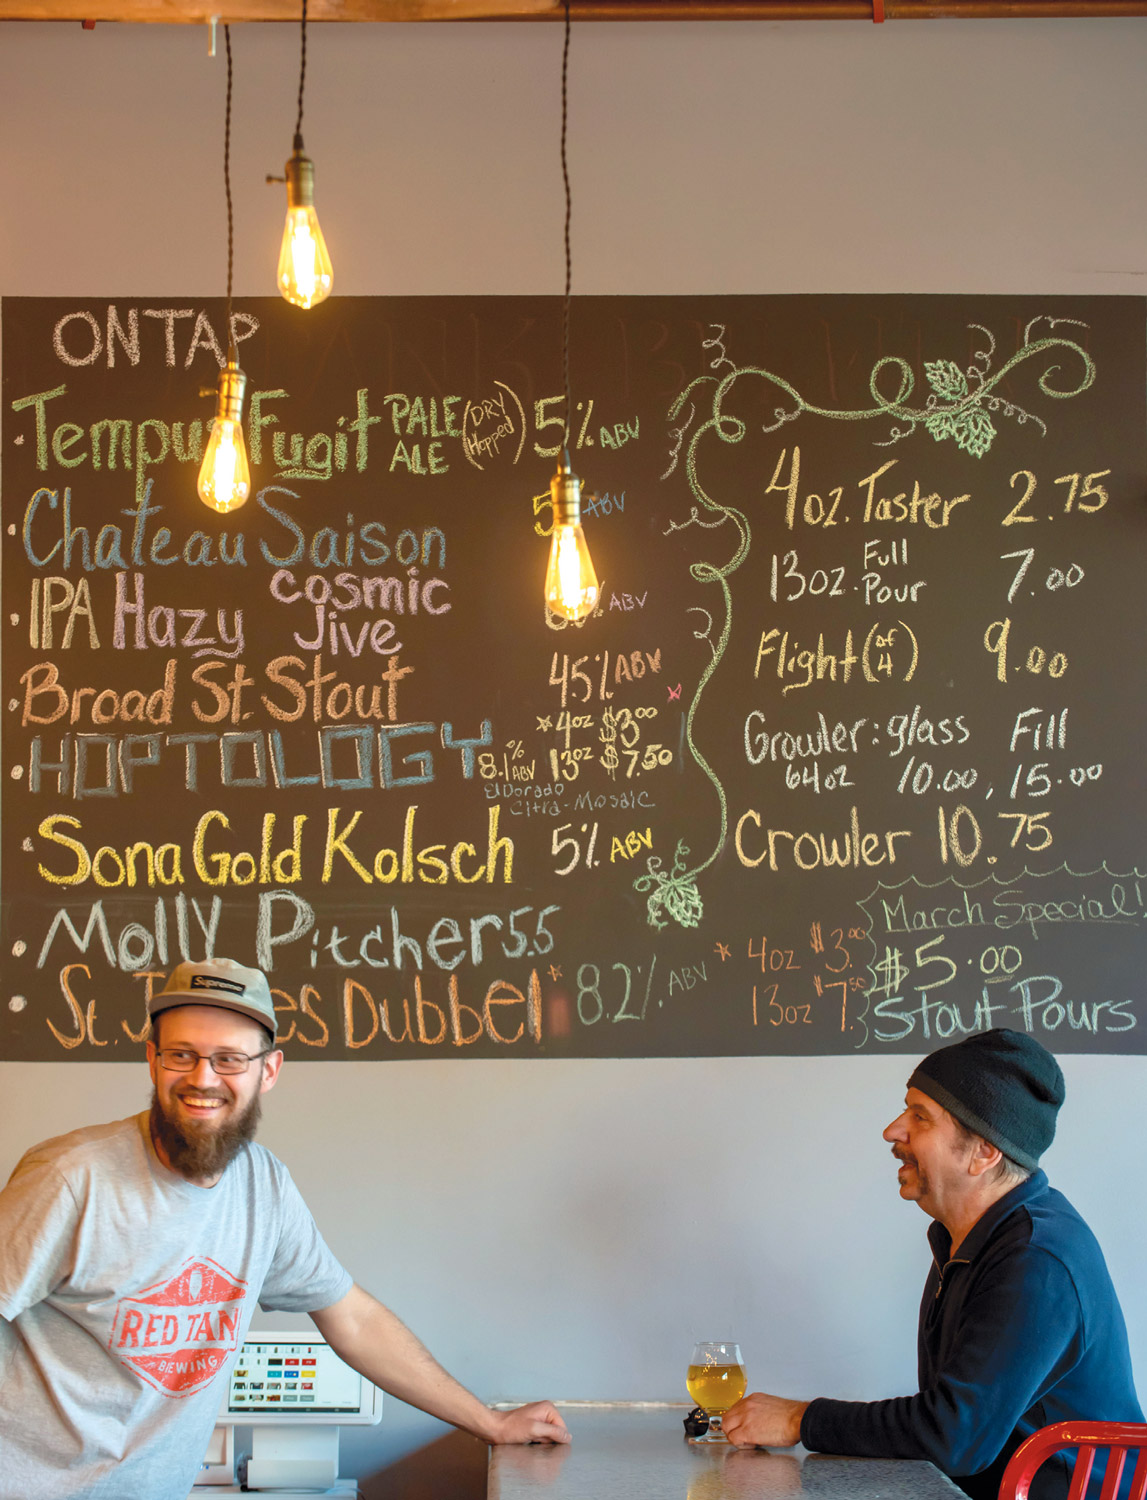 ON TAP
Tempus Fugit PALE ALE (DRY Hopped) 5% ABV
Chateau Saison ABV
IPA Hazy cosmic Jive ABV
Broad St. Stout 45% ABV
HOPTOLOGY 8.1% ABV
*4oz $3.00
13oz $7.50
El Dorado
Citra-Mosaic
Sona Gold Kolsch 5% ABV
Molly Pitcher 5.5
St. Dubbel* 8.2% ABV
* 4oz $3.00
13oz $7.50
4oz. Taster 2.75
13oz. Full Pour 7.00
Flight (of 4) 9.00
Growler: glass Fill
64oz 10.00, 15.00
Crowler 10.75
March Special!
$5.00
Stout Pours
Supreme
RED TAN
BREWING